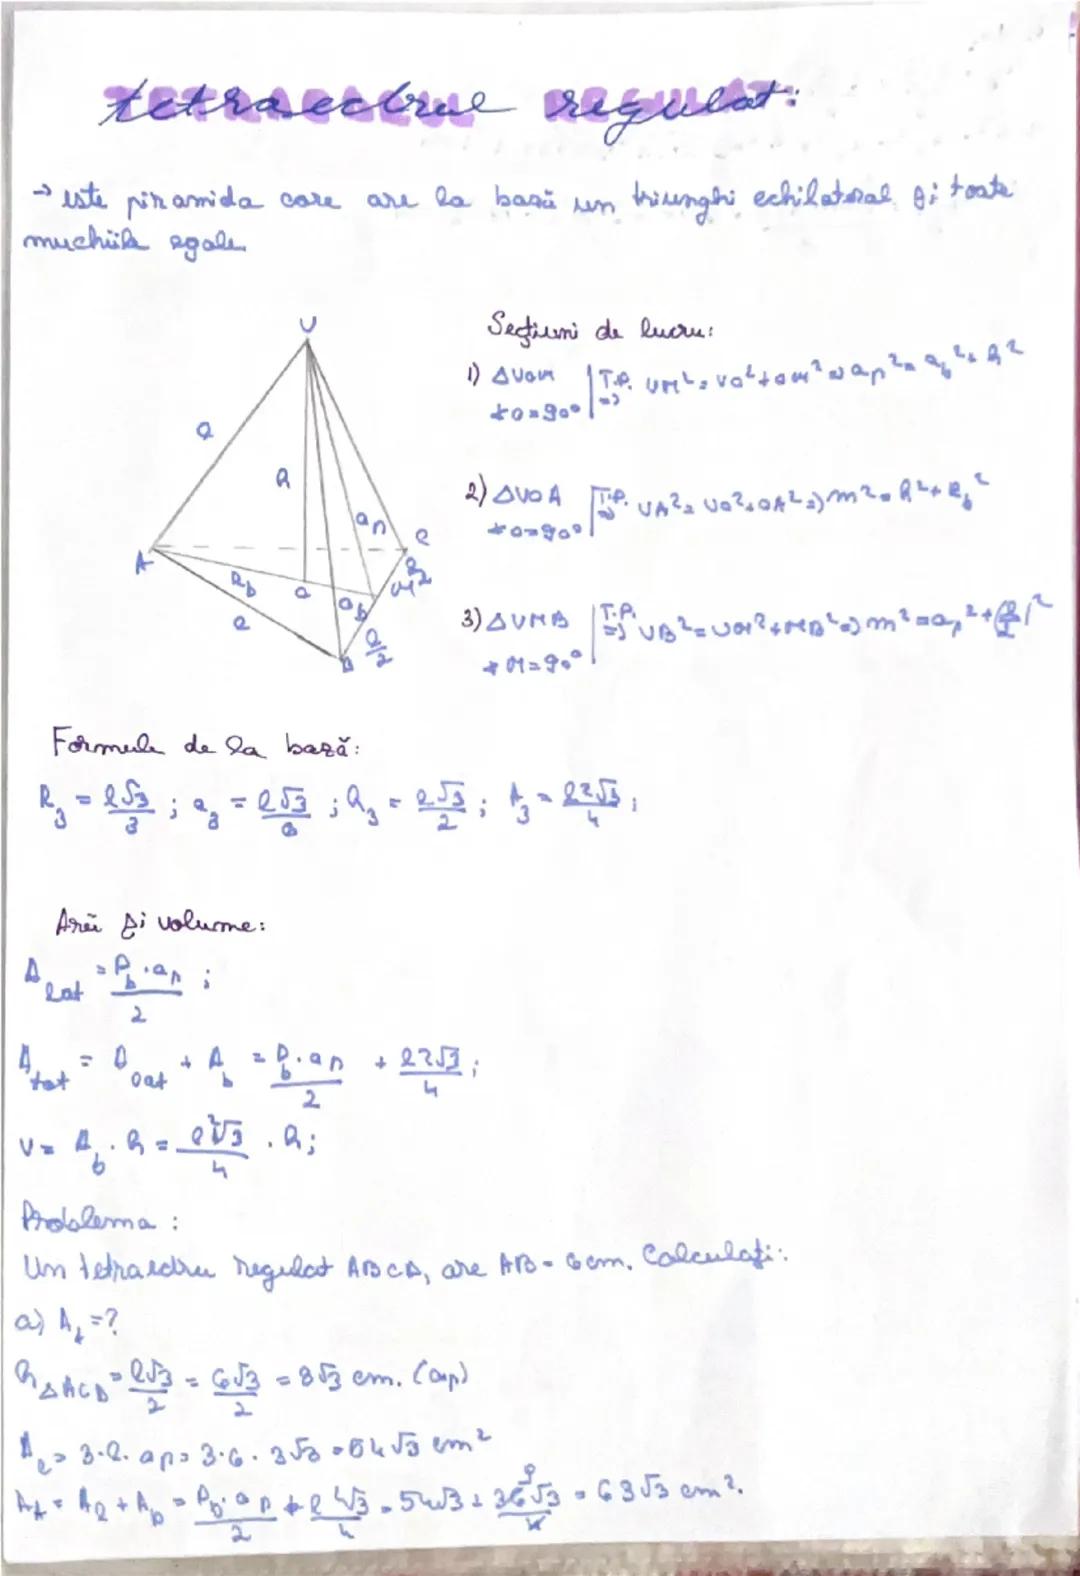 tetraedrul regulat:
→ este piramida care are la bază un triunghi echilateral și toate
muchiile egale.
V
Secțiuni de lucru:
1) △VOM | T.P. VM² = VO² + OM² => ap² = ab² + h²
∢O = 90° | =>
l
h
2) △VOA | T.P. VA² = VO² + OA² => m² = h² + Rb²
∢O = 90° | =>
ap
C
A
Rb
O
ab
M
l/2
3) △VMB | T.P. VB² = VM² + MB² => m² = ap² + (l/2)²
∢M = 90° | =>
l
l/2
B
Formule de la bază:
R₃ = l√3/3 ; a₃ = l√3/6 ; h₃ = l√3/2 ; A₃ = l²√3/4 ;
Arii și volume:
A lat = Pb · ap / 2 ;
A tot = A lat + A b = Pb · ap / 2 + l²√3/4 ;
V = A b · h = l²√3/4 · h ;
Problema :
Un tetraedru regulat ABCD, are AB = 6cm. Calculați:
a) At = ?
h△ACD = l√3/2 = 6√3/2 = 3√3 cm. (ap)
Al = 3·l·ap = 3·6·3√3 = 54√3 cm²
At = Al + Ab = Pb · ap / 2 + l²√3/4 = 54√3 + 36√3/4 = 63√3 cm².
9